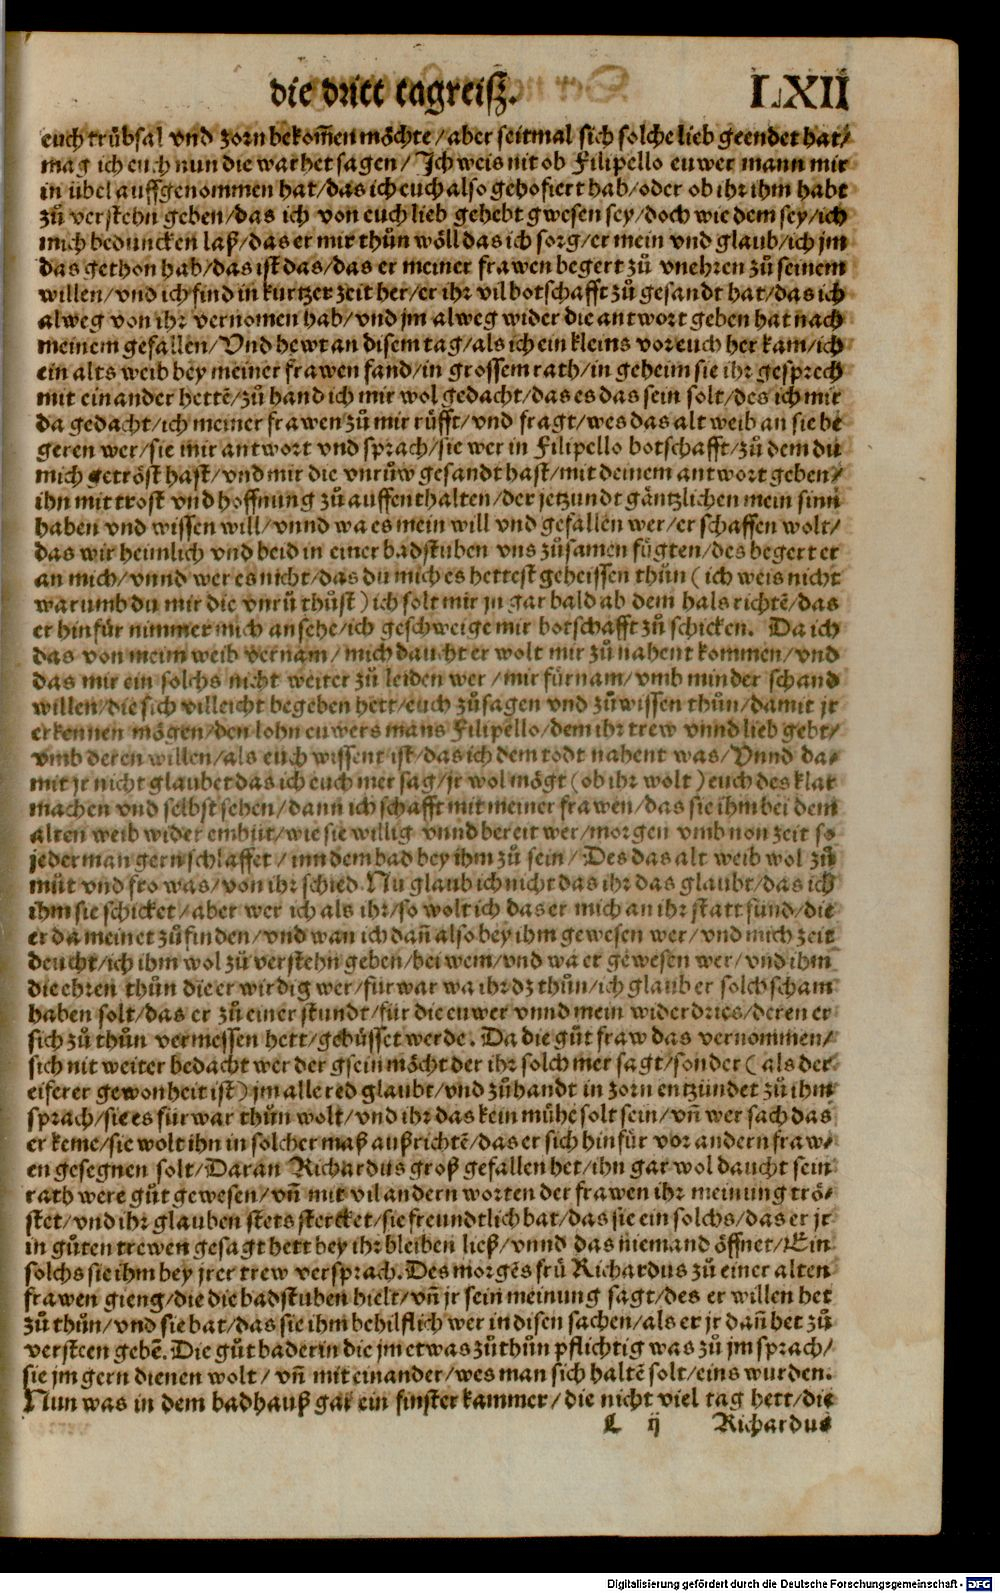 die dritt tagreisz. LXII
euch trübsal vnd zorn bekom̃en möchte/aber seitmal sich solche lieb geendet hat/
mag ich euch nun die warhet sagen/Ich weis nit ob Filipello euwer mann mir
in übel auffgenommen hat/das ich euch also gehofiert hab/oder ob ihr ihm habt
zů verstehn geben/das ich von euch lieb gehebt gwesen sey/doch wie dem sey/ich
mich beduncken laß/das er mir thůn wöll das ich sorg/er mein vnd glaub/ich jm
das gethon hab/das ist das/das er meiner frawen begert zů vnehren zů seinem
willen/vnd ich find in kurtzer zeit her/er ihr vil botschafft zů gesandt hat/das ich
alweg von ihr vernomen hab/vnd jm alweg wider die antwort geben hat nach
meinem gefallen/Vnd hewt an disem tag/als ich ein kleins vor euch her kam/ich
ein alts weib bey meiner frawen fand/in grossem rath/in geheim sie ihr gesprech
mit einander hettē/zů hand ich mir wol gedacht/das es das sein solt/des ich mir
da gedacht/ich meiner frawen zů mir růfft/vnd fragt/wes das alt weib an sie be
geren wer/sie mir antwort vnd sprach/sie wer in Filipello botschafft/zů dem du
mich getröst hast/vnd mir die vnrůw gesandt hast/mit deinem antwort geben/
ihn mit trost vnd hoffnung zů auffenthalten/der jetzundt gäntzlichen mein sinn
haben vnd wissen will/vnnd wa es mein will vnd gefallen wer/er schaffen wolt/
das wir heimlich vnd beid in einer badstuben vns zůsamen fügten/des begert er
an mich/vnnd wer es nicht/das du mich es hettest geheissen thůn (ich weis nicht
warumb du mir die vnrů thůst) ich solt mir jn gar bald ab dem hals richtē/das
er hinfür nimmer mich ansehe/ich geschweige mir botschafft zů schicken. Da ich
das von meim weib vernam/mich daucht er wolt mir zů nahent kommen/vnd
das mir ein solchs nicht weiter zů leiden wer/mir fürnam/vmb minder schand
willen/die sich villeicht begeben hett/euch zůsagen vnd zůwissen thůn/damit jr
erkennen mögen/den lohn euwers mans Filipello/dem ihr trew vnnd lieb gebt/
vmb deren willen/als euch wissent ist/das ich dem todt nahent was/Vnnd da-
mit jr nicht glaubet das ich euch mer sag/jr wol mögt (ob ihr wolt) euch des klar
machen vnd selbst sehen/dann ich schafft mit meiner frawen/das sie ihm bei dem
alten weib wider embüt/wie sie willig vnnd bereit wer/morgen vmb non zeit so
jederman gern schlaffet/inn dem bad bey ihm zů sein/Des das alt weib wol zů
můt vnd fro was/von ihr schied. Nu glaub ich nicht das ihr das glaubt/das ich
ihm sie schicket/aber wer ich als ihr/so wolt ich das er mich an ihr statt fünd/die
er da meinet zůfinden/vnd wan ich dañ also bey ihm gewesen wer/vnd mich zeit
deucht/ich ihm wol zů verstehn geben/bei wem/vnd wa er gewesen wer/vnd ihm
die ehren thůn die er wirdig wer/fürwar wa ihr dz thůn/ich glaub er solch scham
haben solt/das er zů einer stundt/für die euwer vnnd mein widerdries/deren er
sich zů thůn vermessen hett/gebüsset werde. Da die gůt fraw das vernommen/
sich nit weiter bedacht wer der gsein möcht der ihr solch mer sagt/sonder (als der
eiferer gewonheit ist) jm alle red glaubt/vnd zůhandt in zorn entzündet zů ihm
sprach/sie es fürwar thůn wolt/vnd ihr das kein mühe solt sein/vñ wer sach das
er keme/sie wolt ihn in solcher maß außrichtē/das er sich hinfür vor andern fraw-
en gesegnen solt/Daran Richardus groß gefallen het/ihn gar wol daucht sein
rath were gůt gewesen/vñ mit vil andern worten der frawen ihr meinung trö-
stet/vnd ihr glauben stets stercket/sie freundtlich bat/das sie ein solchs/das er jr
in gůten trewen gesagt hett bey ihr bleiben ließ/vnnd das niemand öffnet/Ein
solchs sie ihm bey jrer trew versprach. Des morgēs frů Richardus zů einer alten
frawen gieng/die die badstuben hielt/vñ jr sein meinung sagt/des er willen het
zů thůn/vnd sie bat/das sie ihm behilflich wer in disen sachen/als er jr dañ het zů
versteen gebē. Die gůt baderin die jm etwas zůthůn pflichtig was zů jm sprach/
sie jm gern dienen wolt/vñ mit einander/wes man sich haltē solt/eins wurden.
Nun was in dem badhauß gar ein finster kammer/die nicht viel tag hett/die
L ij Richardus
Digitalisierung gefördert durch die Deutsche Forschungsgemeinschaft - DFG